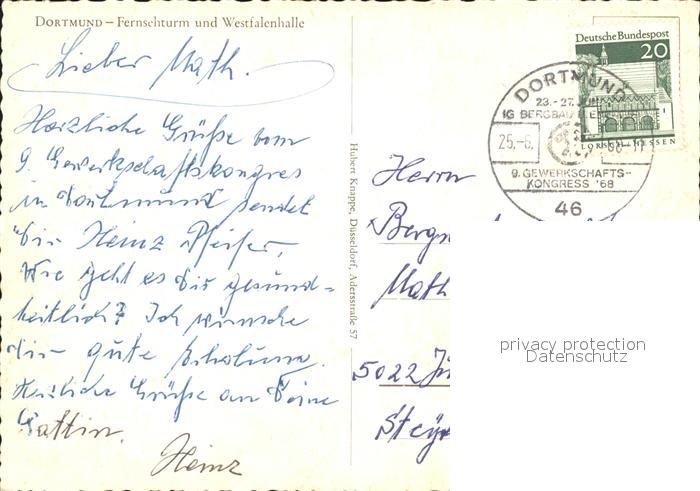 DORTMUND – Fernsehturm und Westfalenhalle
Lieber Math.
Herzliche Grüße vom
9. Gewerkschaftskongres
in Dortmund sendet
Dir Heinz Pfeifer,
Wie geht es Dir gesund-
heitlich? Ich wünsche
Dir gute Erholung.
Herzliche Grüße an Deine
Gattin.
Heinz
Hubert Knappe, Düsseldorf, Adersstraße 57
Deutsche Bundespost
20
LORSCH/HESSEN
DORTMUND
23.-27. JUNI
IG BERGBAU
25.-6.
9. GEWERKSCHAFTS-
KONGRESS '68
46
Herrn
Math
5022
privacy protection
Datenschutz